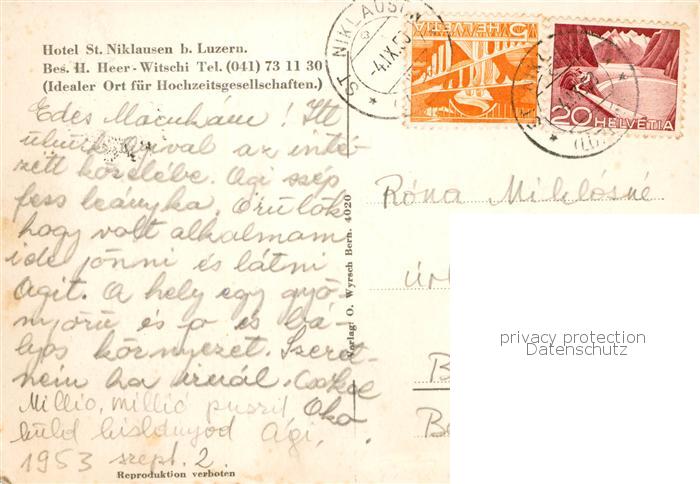 Hotel St. Niklausen b. Luzern.
Bes. H. Heer-Witschi Tel. (041) 73 11 30
(Idealer Ort für Hochzeitsgesellschaften.)
Edes Macukám! Itt
ulunk Agival az inté-
zett közelébe. Agi szép
fess leányka. Örülök
hogy volt alkalmam
ide jönni és látni
Agit. A hely egy gyö-
nyörü és a bá-
jos környezet. Szeret-
ném ha irnál. Csokol
Oka
Millio, millió puszit
küld kislányod Ági,
1953 szept. 2.
Reproduktion verboten
Verlag: O. Wyrsch Bern. 4020
ST. NIKLAUSEN
-4.IX.53
5 HELVETIA
20 HELVETIA
(LUZ
Róna Miklósné
privacy protection
Datenschutz